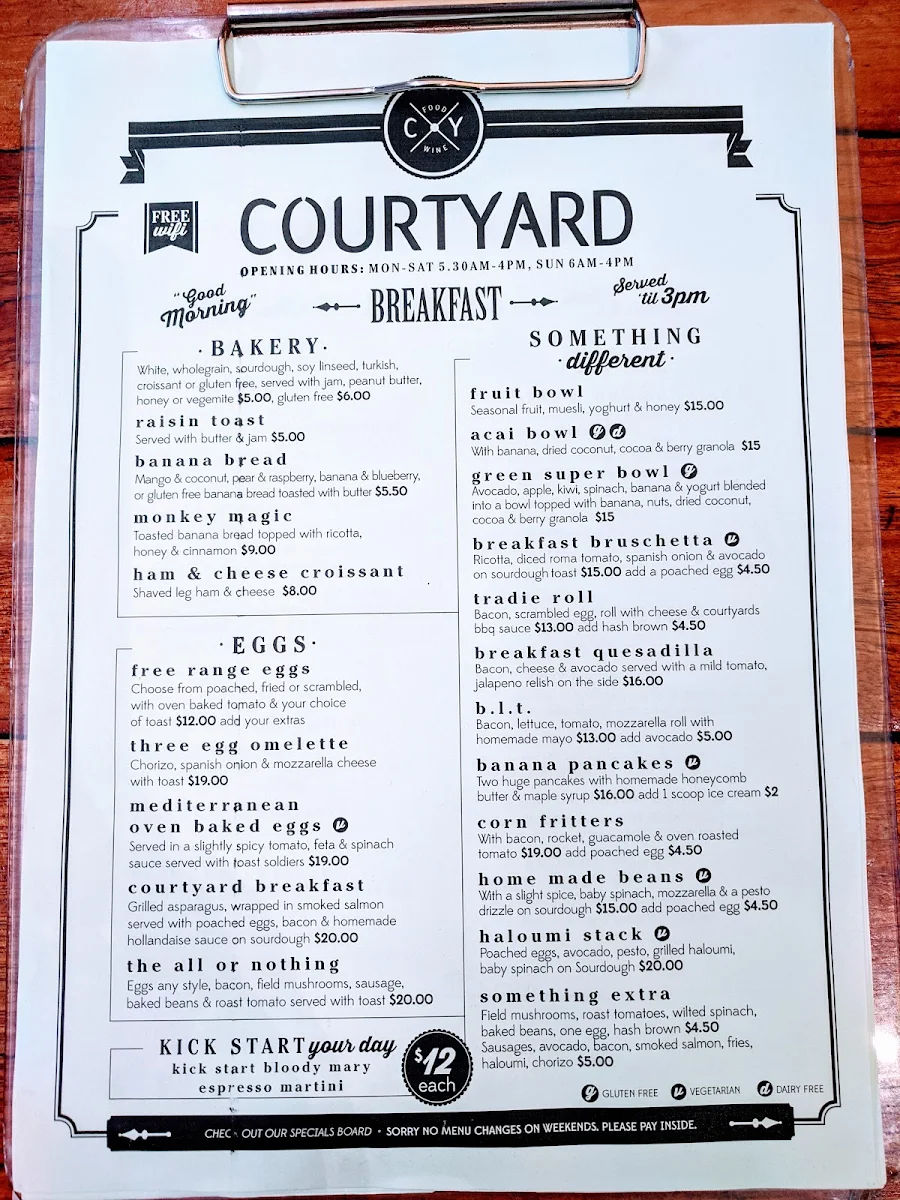 FOOD
C Y
WINE
FREE
wifi
COURTYARD
OPENING HOURS: MON-SAT 5.30AM-4PM, SUN 6AM-4PM
"Good
Morning"
BREAKFAST
Served
'til 3pm
·BAKERY·
White, wholegrain, sourdough, soy linseed, turkish,
croissant or gluten free, served with jam, peanut butter,
honey or vegemite $5.00, gluten free $6.00
raisin toast
Served with butter & jam $5.00
banana bread
Mango & coconut, pear & raspberry, banana & blueberry,
or gluten free banana bread toasted with butter $5.50
monkey magic
Toasted banana bread topped with ricotta,
honey & cinnamon $9.00
ham & cheese croissant
Shaved leg ham & cheese $8.00
·EGGS·
free range eggs
Choose from poached, fried or scrambled,
with oven baked tomato & your choice
of toast $12.00 add your extras
three egg omelette
Chorizo, spanish onion & mozzarella cheese
with toast $19.00
mediterranean
oven baked eggs v
Served in a slightly spicy tomato, feta & spinach
sauce served with toast soldiers $19.00
courtyard breakfast
Grilled asparagus, wrapped in smoked salmon
served with poached eggs, bacon & homemade
hollandaise sauce on sourdough $20.00
the all or nothing
Eggs any style, bacon, field mushrooms, sausage,
baked beans & roast tomato served with toast $20.00
KICK START your day
kick start bloody mary
espresso martini
$12
each
SOMETHING
·different·
fruit bowl
Seasonal fruit, muesli, yoghurt & honey $15.00
acai bowl g d
With banana, dried coconut, cocoa & berry granola $15
green super bowl g
Avocado, apple, kiwi, spinach, banana & yogurt blended
into a bowl topped with banana, nuts, dried coconut,
cocoa & berry granola $15
breakfast bruschetta v
Ricotta, diced roma tomato, spanish onion & avocado
on sourdough toast $15.00 add a poached egg $4.50
tradie roll
Bacon, scrambled egg, roll with cheese & courtyards
bbq sauce $13.00 add hash brown $4.50
breakfast quesadilla
Bacon, cheese & avocado served with a mild tomato,
jalapeno relish on the side $16.00
b.l.t.
Bacon, lettuce, tomato, mozzarella roll with
homemade mayo $13.00 add avocado $5.00
banana pancakes v
Two huge pancakes with homemade honeycomb
butter & maple syrup $16.00 add 1 scoop ice cream $2
corn fritters
With bacon, rocket, guacamole & oven roasted
tomato $19.00 add poached egg $4.50
home made beans v
With a slight spice, baby spinach, mozzarella & a pesto
drizzle on sourdough $15.00 add poached egg $4.50
haloumi stack v
Poached eggs, avocado, pesto, grilled haloumi,
baby spinach on Sourdough $20.00
something extra
Field mushrooms, roast tomatoes, wilted spinach,
baked beans, one egg, hash brown $4.50
Sausages, avocado, bacon, smoked salmon, fries,
haloumi, chorizo $5.00
g GLUTEN FREE v VEGETARIAN d DAIRY FREE
CHECK OUT OUR SPECIALS BOARD • SORRY NO MENU CHANGES ON WEEKENDS. PLEASE PAY INSIDE.